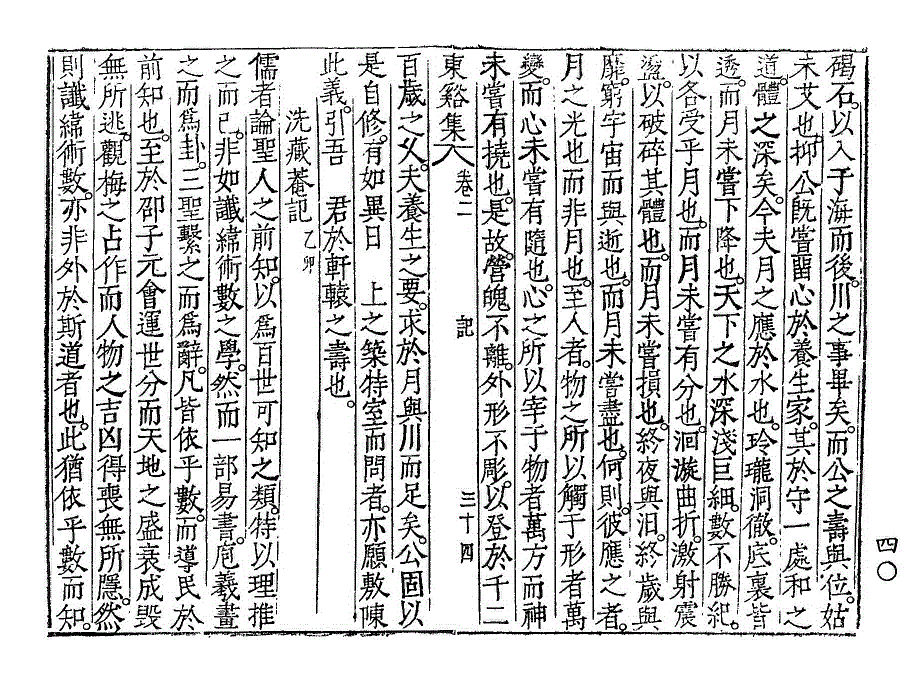 碣石。以入于海而後。川之事畢矣。而公之壽與位。姑
未艾也。抑公旣嘗留心於養生家。其於守一處和之
道。體之深矣。今夫月之應於水也。玲瓏洞徹。底裏皆
透。而月未嘗下降也。天下之水深淺巨細。數不勝紀。
以各受乎月也。而月未嘗有分也。洄漩曲折。激射震
盪。以破碎其體也。而月未嘗損也。終夜與汨。終歲與
靡。窮宇宙而與逝也。而月未嘗盡也。何則。彼應之者。
月之光也而非月也。至人者。物之所以觸于形者萬
變。而心未嘗有隨也。心之所以宰于物者萬方而神
未嘗有撓也。是故。營魄不離。外形不彫。以登於千二
東谿集 卷二 記 三十四
百歲之乂。夫養生之要。求於月與川而足矣。公固以
是自修。有如異日 上之築特室而問者。亦願敷陳
此義。引吾 君於軒轅之壽也。
洗藏菴記 乙卯
儒者論聖人之前知。以爲百世可知之類。特以理推
之而已。非如讖緯術數之學。然而一部易書。庖羲畫
之而爲卦。三聖繫之而爲辭。凡皆依乎數。而導民於
前知也。至於邵子元會運世分而天地之盛衰成毁
無所逃。觀梅之占作而人物之吉凶得喪無所隱。然
則讖緯術數。亦非外於斯道者也。此猶依乎數而知。
四〇